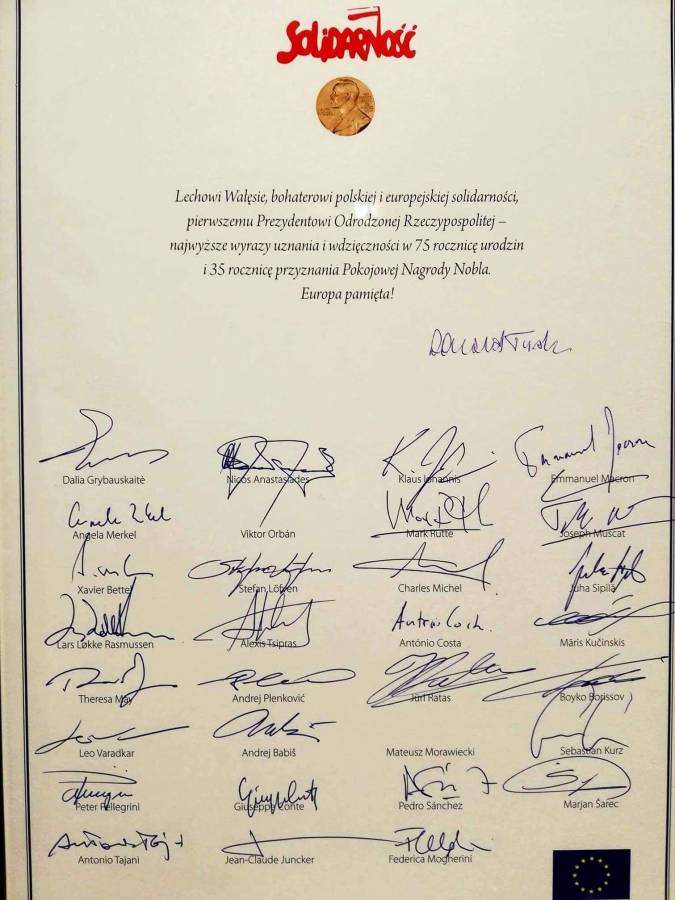 Solidarność
Lechowi Wałęsie, bohaterowi polskiej i europejskiej solidarności,
pierwszemu Prezydentowi Odrodzonej Rzeczypospolitej –
najwyższe wyrazy uznania i wdzięczności w 75 rocznicę urodzin
i 35 rocznicę przyznania Pokojowej Nagrody Nobla.
Europa pamięta!
Donald Tusk
Dalia Grybauskaitė Nicos Anastasiades Klaus Iohannis Emmanuel Macron
Angela Merkel Viktor Orbán Mark Rutte Joseph Muscat
Xavier Bettel Stefan Löfven Charles Michel Juha Sipilä
Lars Løkke Rasmussen Alexis Tsipras António Costa Māris Kučinskis
Theresa May Andrej Plenković Jüri Ratas Boyko Borissov
Leo Varadkar Andrej Babiš Mateusz Morawiecki Sebastian Kurz
Peter Pellegrini Giuseppe Conte Pedro Sánchez Marjan Šarec
Antonio Tajani Jean-Claude Juncker Federica Mogherini